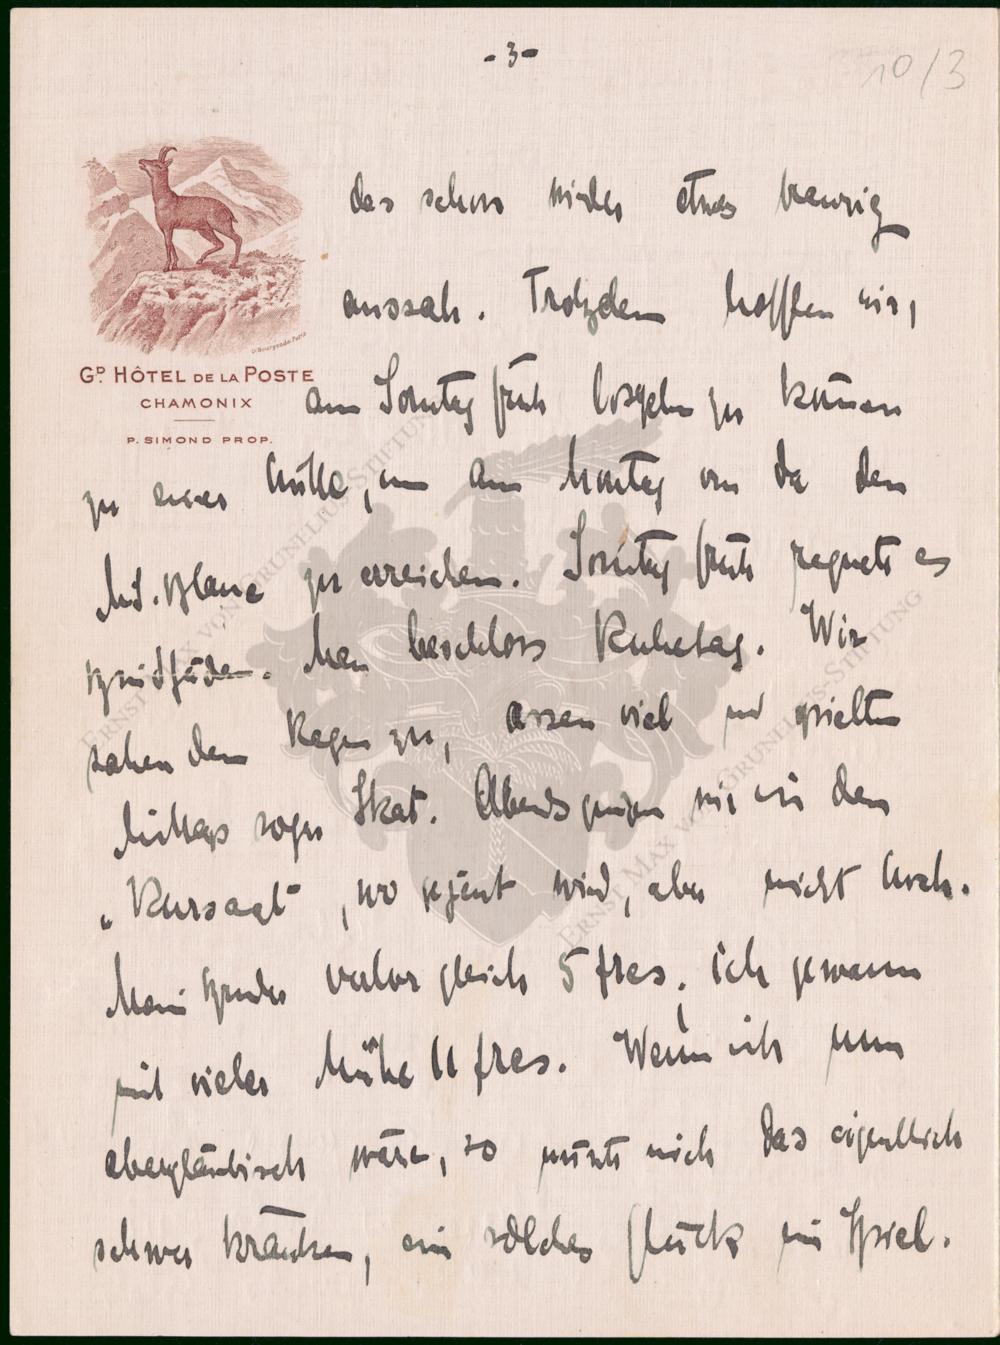 - 3 -
10/3
das schon wieder etwas traurig
aussah. Trotzdem hofften wir,
G.D HÔTEL DE LA POSTE
CHAMONIX
P. SIMOND PROP.
am Sonntag früh losgehn zu können
zu einer Hütte, um am Montag von da den
Mt. Blanc zu erreichen. Sonntag früh regnete es
Bindfäden. Man beschloss Ruhetag. Wir
sahen dem Regen zu, assen viel und spielten
Mittags sogar Skat. Abends gingen wir in den
„Kursaal“, wo gejeut wird, aber nicht hoch.
Mein Bruder verlor gleich 5 frcs, ich gewann
mit vieler Mühe 11 frcs. Wenn ich nun
abergläubisch wäre, so müsste mich das eigentlich
schwer kränken, ein solches Glück im Spiel.
ERNST MAX VON GRUNELIUS-STIFTUNG
ERNST MAX VON GRUNELIUS-STIFTUNG